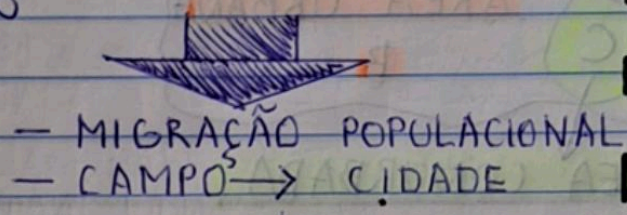 - MIGRAÇÃO POPULACIONAL
- CAMPO → CIDADE